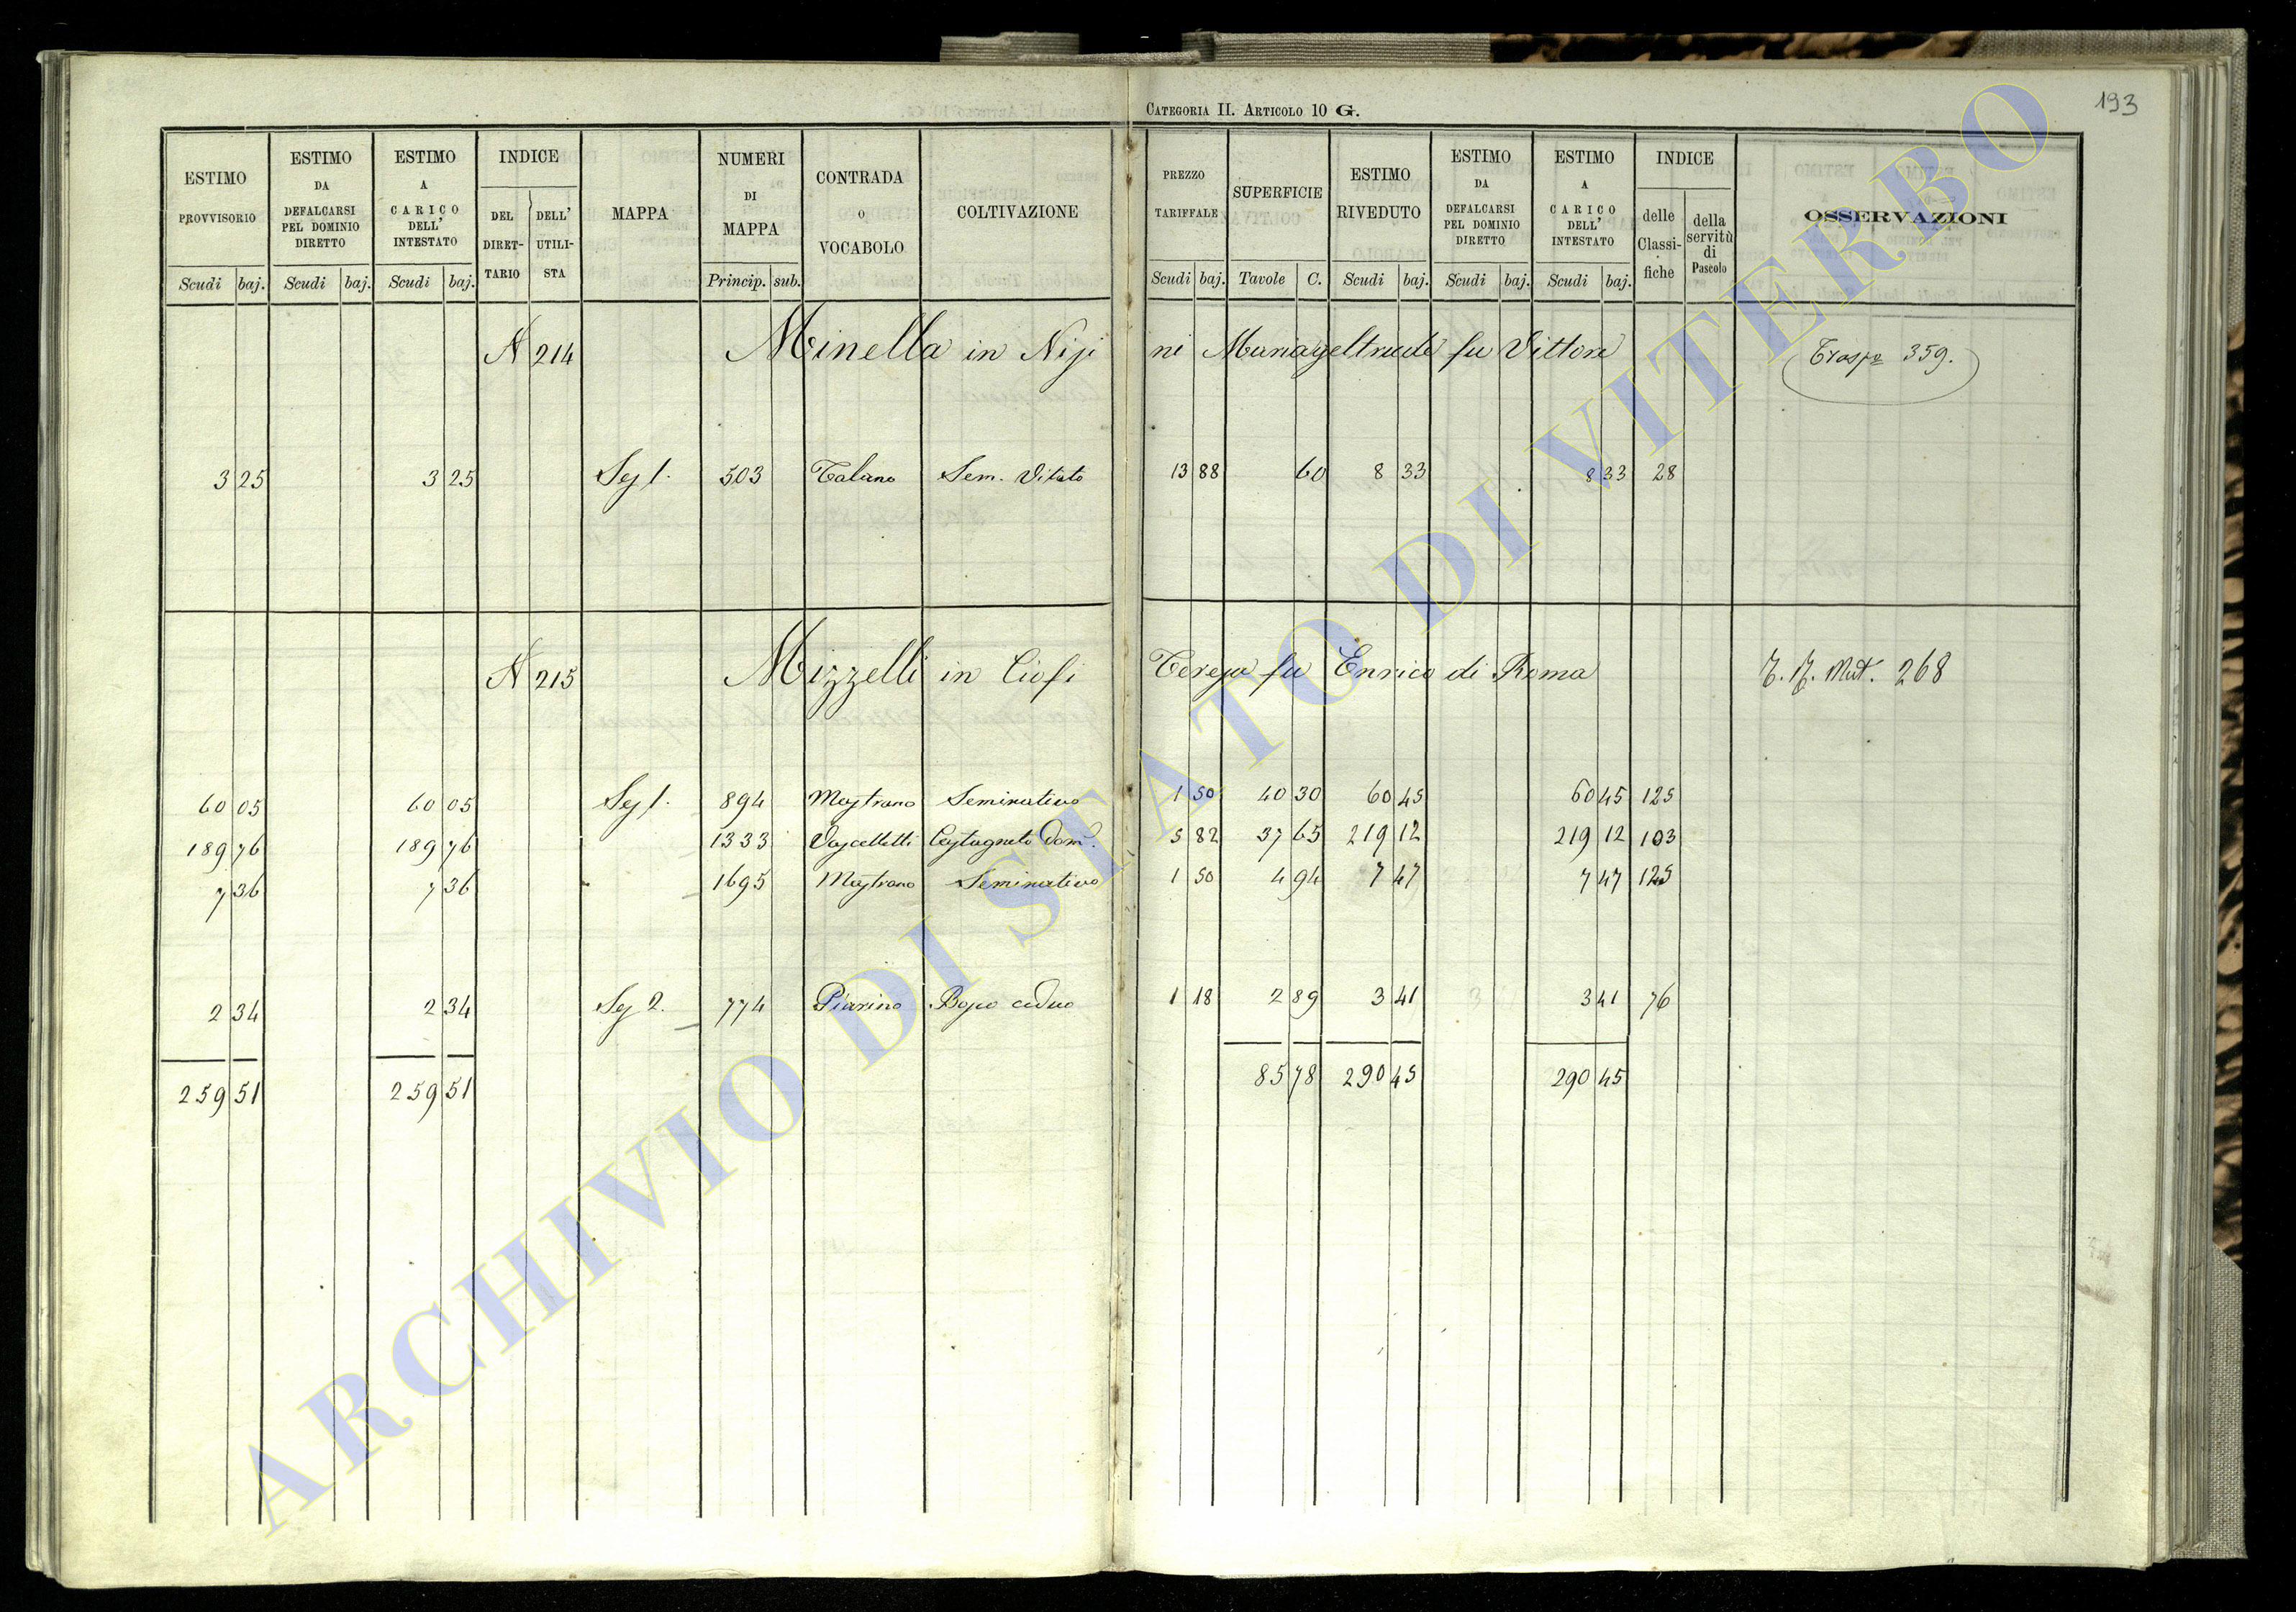 CATEGORIA II. ARTICOLO 10 G.
193
ESTIMO PROVVISORIO Scudi baj.
ESTIMO DA DEFALCARSI PEL DOMINIO DIRETTO Scudi baj.
ESTIMO A CARICO DELL' INTESTATO Scudi baj.
INDICE DEL DIRETTARIO DELL' UTILISTA
MAPPA
NUMERI DI MAPPA Princip. sub.
CONTRADA O VOCABOLO
COLTIVAZIONE
PREZZO TARIFFALE Scudi baj.
SUPERFICIE Tavole C.
ESTIMO RIVEDUTO Scudi baj.
ESTIMO DA DEFALCARSI PEL DOMINIO DIRETTO Scudi baj.
ESTIMO A CARICO DELL' INTESTATO Scudi baj.
INDICE delle Classifiche della servitù di Pascolo
OSSERVAZIONI
N 214 Minella in Nisi ni Mariageltrude fu Vittore 359.
3 25 3 25 Sez 1. 503 Talano Sem. Vitato 13 88 60 8 33 8 33 28
N 215 Mizzelli in Ciofi Teresa fu Enrico di Roma Mut. 268
60 05 60 05 Sez 1. 894 Mastrano Seminativo 1 50 40 30 60 45 60 45 125
189 76 189 76 1333 Vascelletti Castagneto Dom. 5 82 37 65 219 12 219 12 103
7 36 7 36 1695 Mastrano Seminativo 1 50 4 94 7 47 7 47 125
2 34 2 34 Sez 2. 774 Piarino Bosco ceduo 1 18 2 89 3 41 3 41 76
259 51 259 51 85 78 290 45 290 45
ARCHIVIO DI STATO DI VITERBO